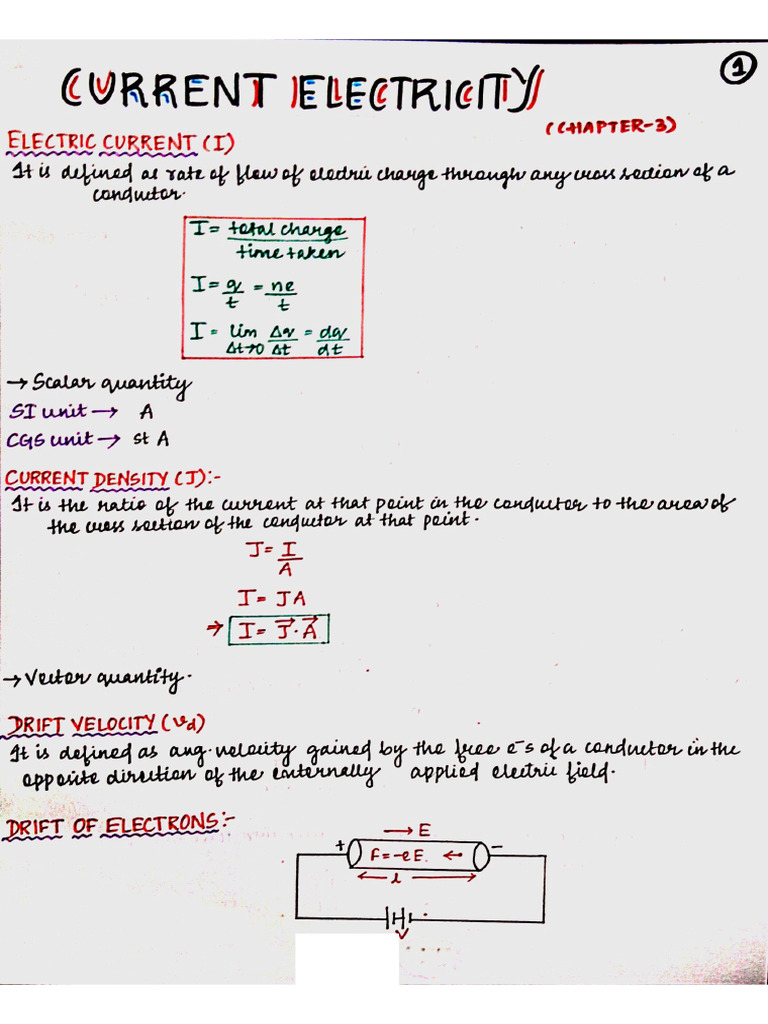 1
CURRENT ELECTRICITY
(CHAPTER-3)
ELECTRIC CURRENT (I)
It is defined as rate of flow of electric charge through any cross section of a
conductor.
I = total charge / time taken
I = q/t = ne/t
I = lim Δt→0 Δq/Δt = dq/dt
→ Scalar quantity
SI unit → A
CGS unit → st A
CURRENT DENSITY (J):-
It is the ratio of the current at that point in the conductor to the area of
the cross section of the conductor at that point.
J = I/A
I = JA
⇒ I = J⃗·A⃗
→ Vector quantity.
DRIFT VELOCITY (vd)
It is defined as avg. velocity gained by the free e⁻s of a conductor in the
opposite direction of the externally applied electric field.
DRIFT OF ELECTRONS:-
→ E
+ F = -eE. ← -
← l →
V